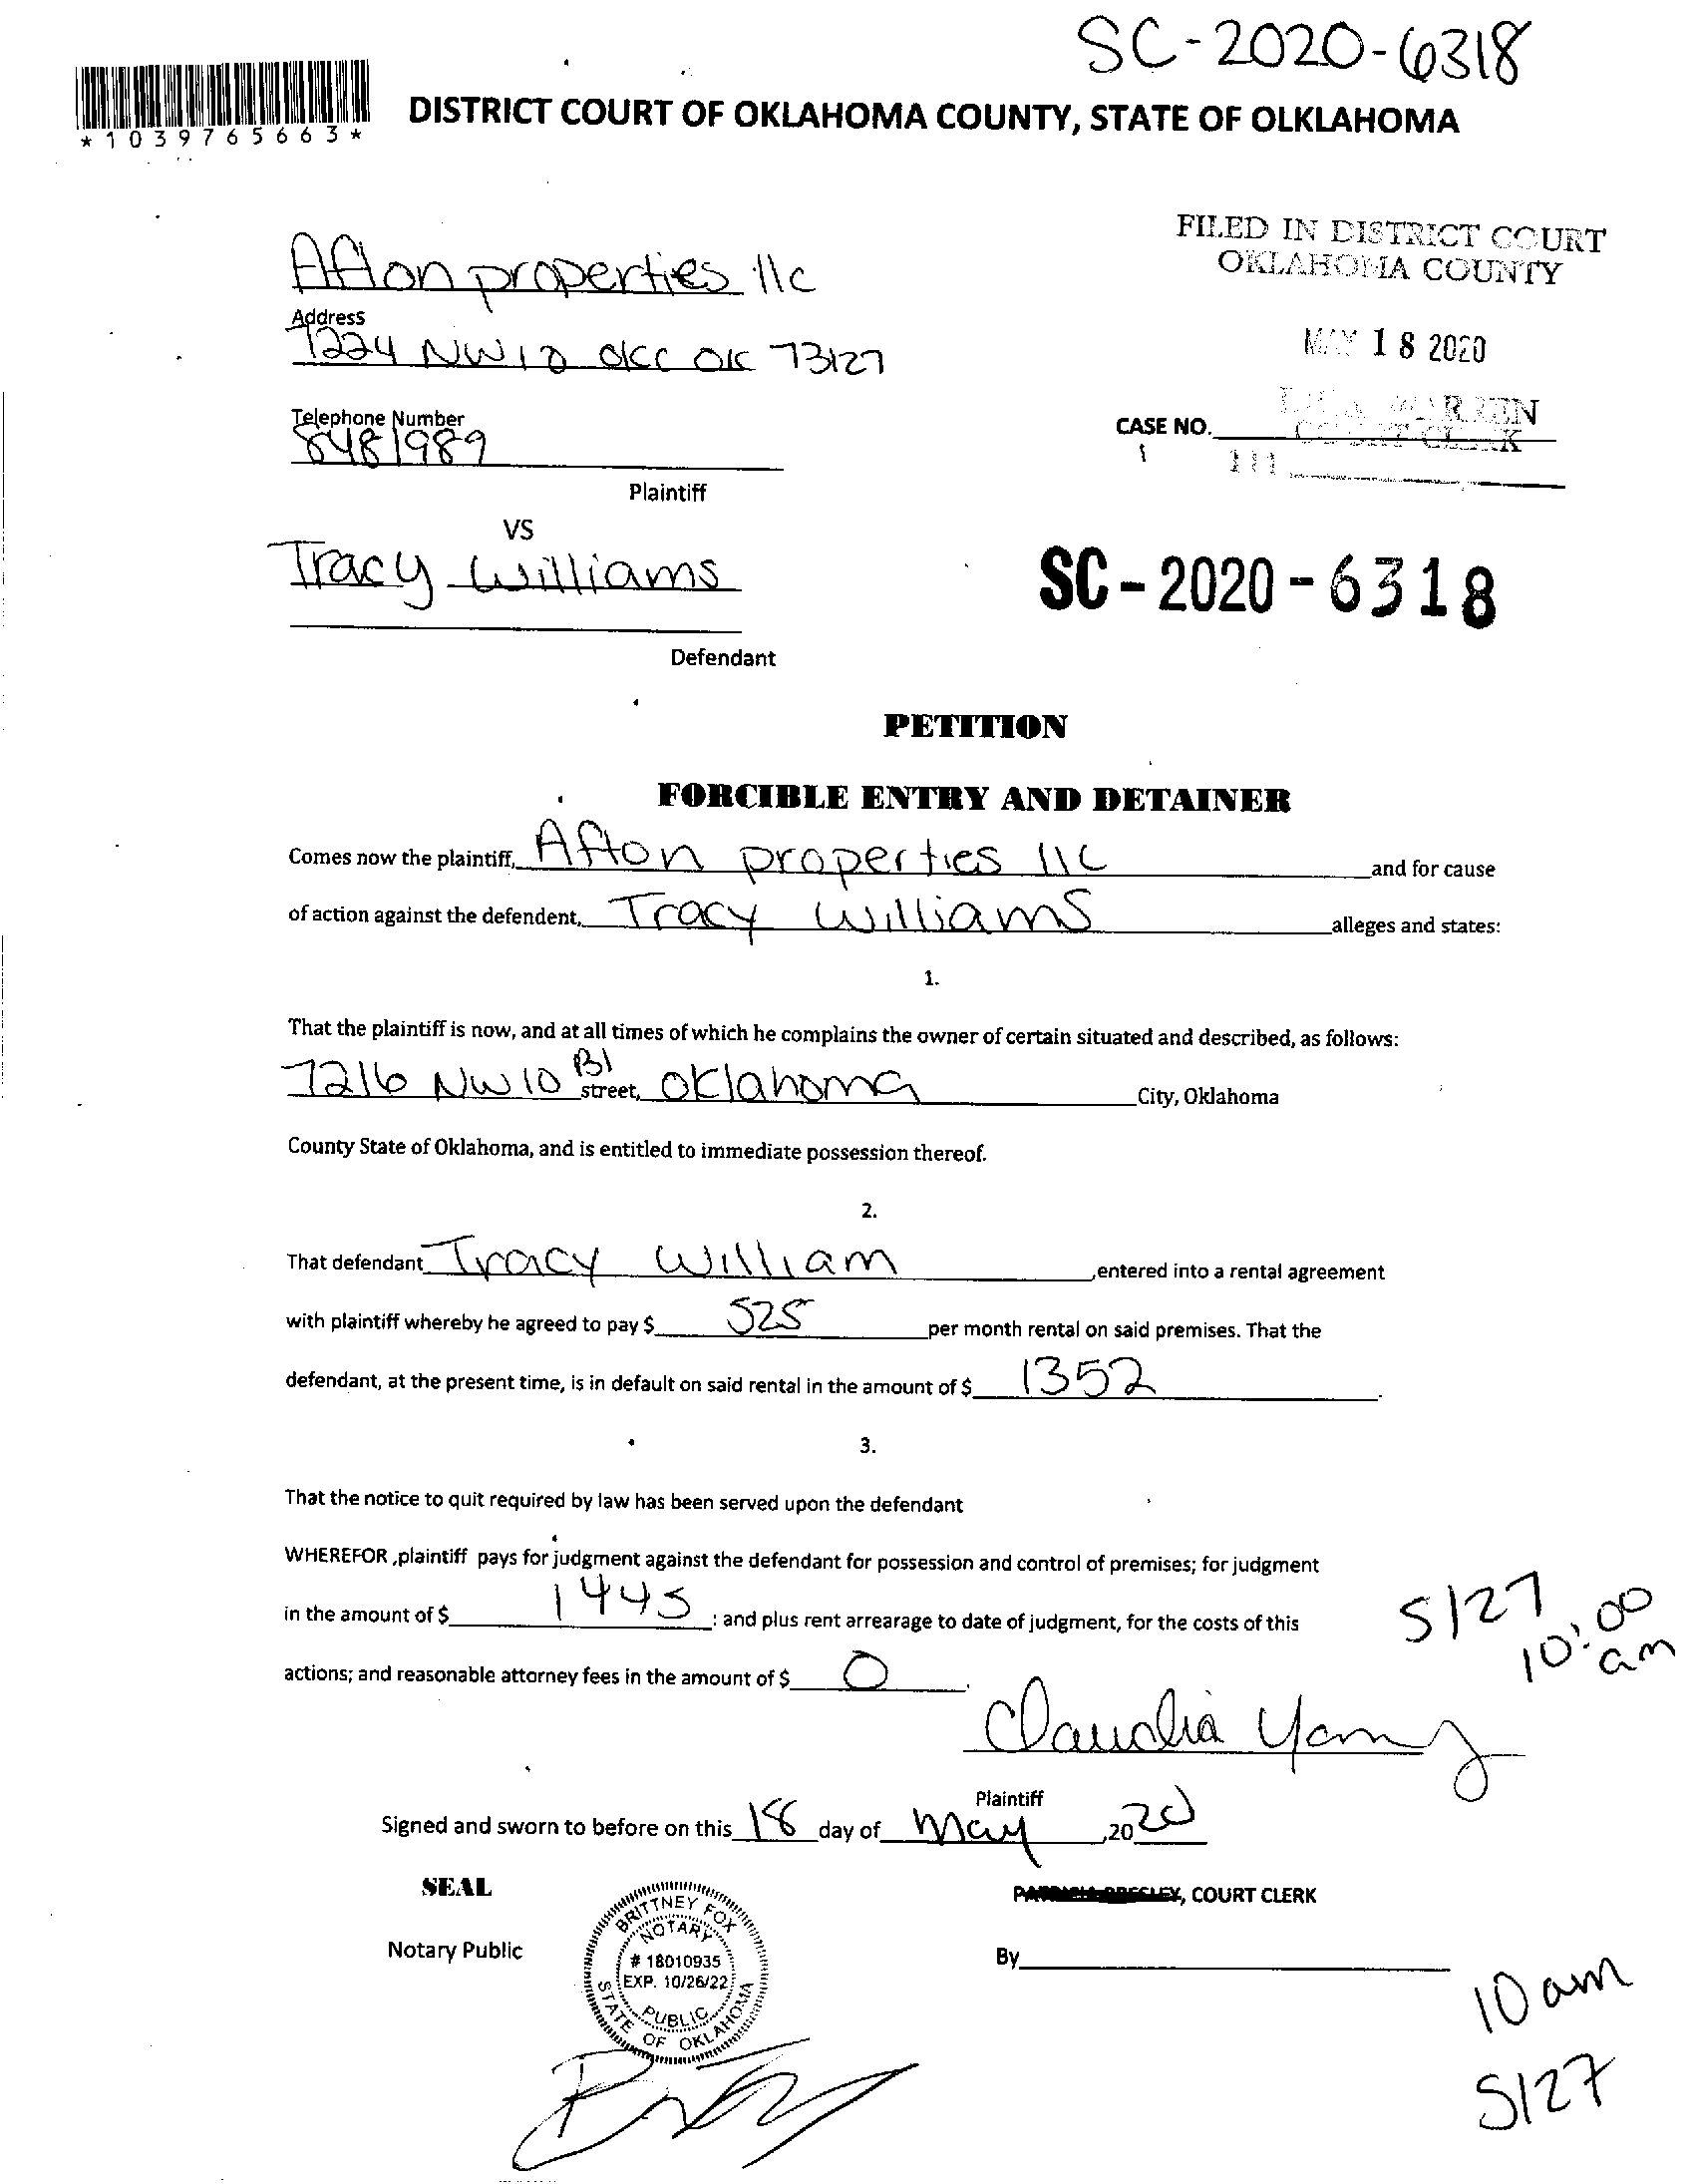 SC-2020-6318
*1039765663*
DISTRICT COURT OF OKLAHOMA COUNTY, STATE OF OLKLAHOMA
FILED IN DISTRICT COURT
OKLAHOMA COUNTY
Afton properties llc
Address
7224 NW 10 OKC OK 73127
MAY 18 2020
Telephone Number
8481989
WARREN
COURT CLERK
CASE NO.
Plaintiff
VS
Tracy Williams
SC-2020-6318
Defendant
PETITION
FORCIBLE ENTRY AND DETAINER
Comes now the plaintiff, Afton properties llc and for cause
of action against the defendent, Tracy Williams alleges and states:
1.
That the plaintiff is now, and at all times of which he complains the owner of certain situated and described, as follows:
7216 NW 10 Bl street, Oklahoma City, Oklahoma
County State of Oklahoma, and is entitled to immediate possession thereof.
2.
That defendant Tracy William ,entered into a rental agreement
with plaintiff whereby he agreed to pay $ 525 per month rental on said premises. That the
defendant, at the present time, is in default on said rental in the amount of $ 1352 .
3.
That the notice to quit required by law has been served upon the defendant
WHEREFOR ,plaintiff pays for judgment against the defendant for possession and control of premises; for judgment
in the amount of $ 1445 : and plus rent arrearage to date of judgment, for the costs of this
5/27
10:00 am
actions; and reasonable attorney fees in the amount of $ 0 .
Claudia
Plaintiff
Signed and sworn to before on this 18 day of May ,2020
SEAL
, COURT CLERK
Notary Public
BRITTNEY FOX
NOTARY
# 18010935
EXP. 10/26/22
PUBLIC
STATE OF OKLAHOMA
By
10 am
5/27